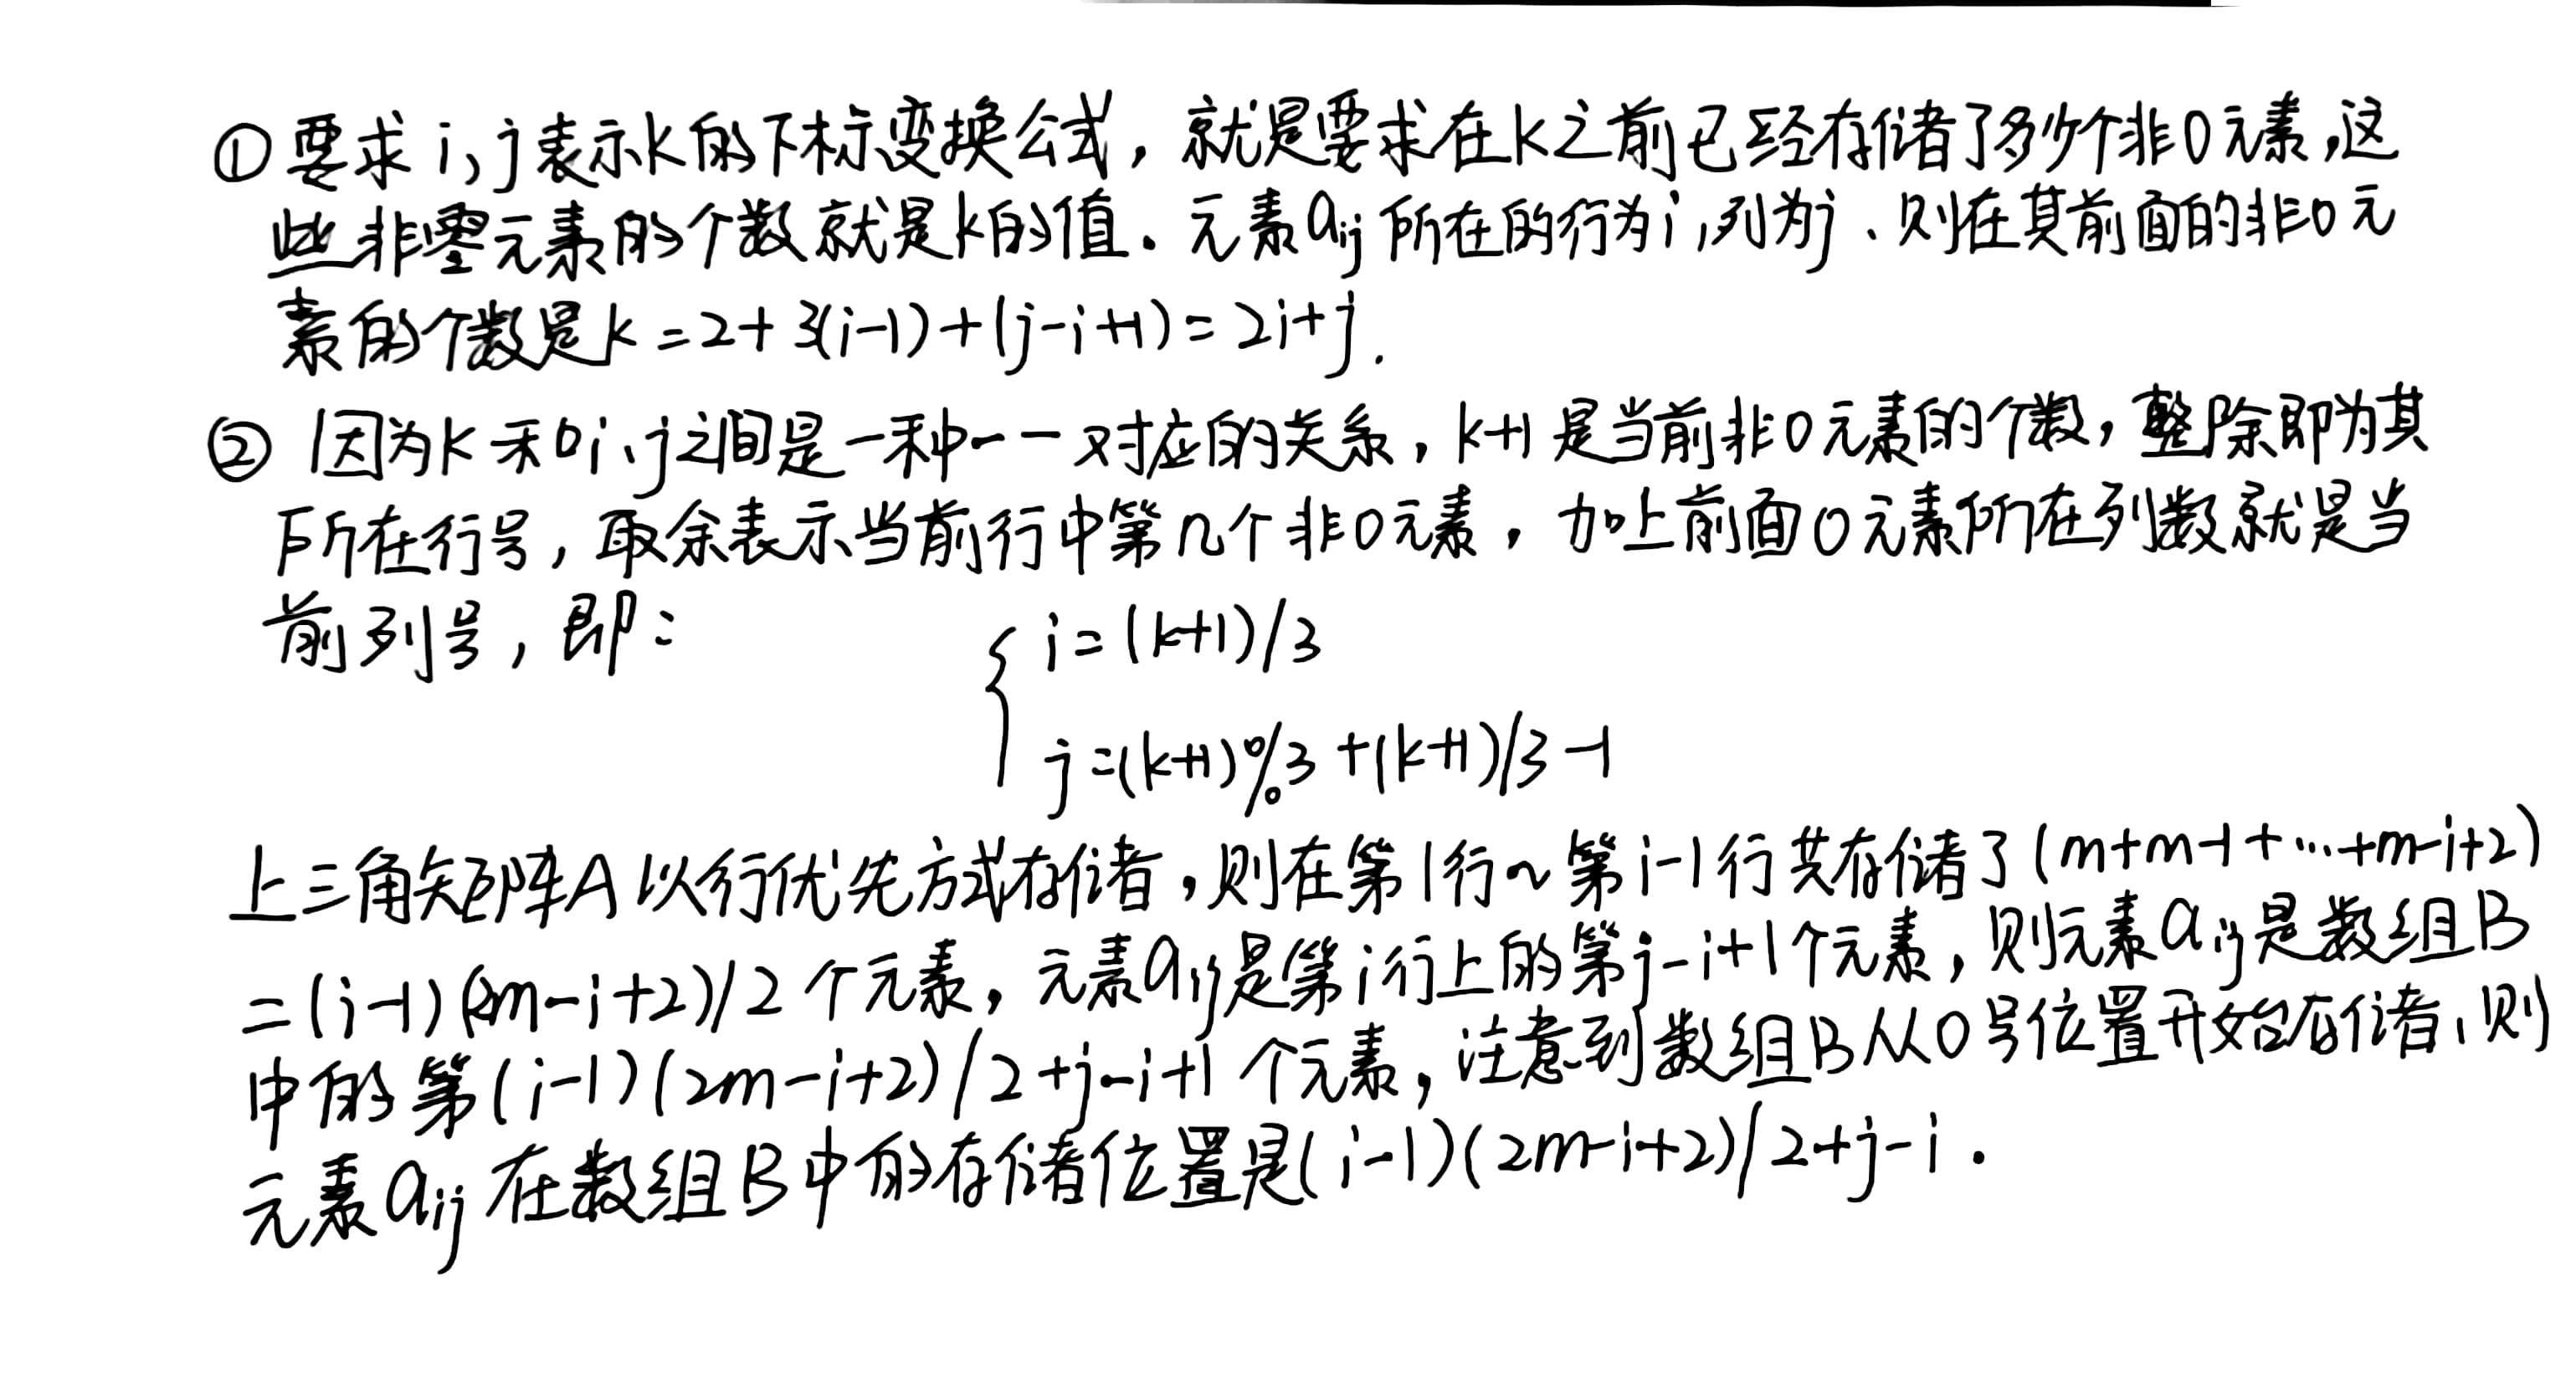 ①要求i,j表示k的下标变换公式，就是要求在k之前已经存储了多少个非0元素,这
些非零元素的个数就是k的值。元素aij所在的行为i,列为j、则在其前面的非0元
素的个数是k=2+3(i-1)+(j-i+1)=2i+j.
② 因为k和i、j之间是一种一一对应的关系，k+1是当前非0元素的个数，整除即为其
所在行号，取余表示当前行中第几个非0元素，加上前面0元素所在列数就是当
前列号，即：
i=(k+1)/3
j=(k+1)%3+(k+1)/3-1
上三角矩阵A以行优先方式存储，则在第1行~第i-1行共存储了(m+m-1+…+m-i+2)
=(i-1)(2m-i+2)/2个元素，元素aij是第i行上的第j-i+1个元素，则元素aij是数组B
中的第(i-1)(2m-i+2)/2+j-i+1个元素，注意到数组B从0号位置开始存储、则
元素aij在数组B中的存储位置是(i-1)(2m-i+2)/2+j-i.